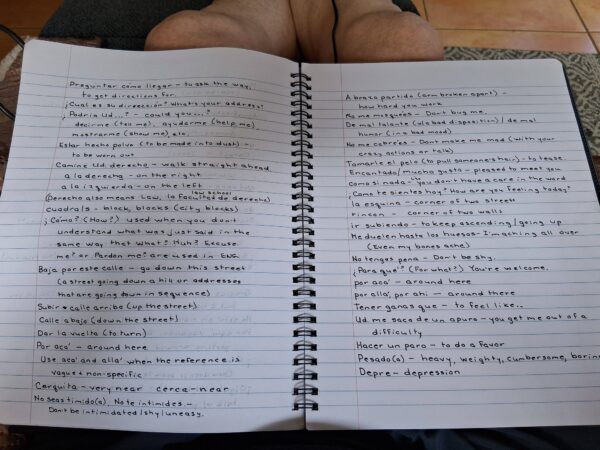 Preguntar como llegar - to ask the way,
to get directions for.
¿Cual es su dirección? What's your address?
¿Podria Ud...? - could you...?
decirme (tell me), ayudarme (help me)
mostrarme (show me), etc.
Estar hecho polvo (to be made into dust) -
to be worn out
Camine Ud. derecho - walk straight ahead
a la derecha - on the right
a la izquierda - on the left
law school
(Derecho also means Law, la facultad de derecho)
cuadra/s - block, blocks (city blocks)
¿Cómo? (How?) used when you don't
understand what was just said in the
same way that What? Huh? Excuse
me? or Pardon me? are used in ENG.
Baja por este calle - go down this street
(a street going down a hill or addresses
that are going down in sequence)
Subir calle arriba (up the street)
Calle abajo (down the street)
Dar la vuelta (to turn)
Por acá - around here
Use acá and allá when the reference is
vague + non-specific
Cerquita - very near cerca - near
No seas timido(a), No te intimides -
Don't be intimidated/shy/uneasy.
A brazo partido (arm broken apart) -
how hard you work
No me mosquees - Don't bug me.
De mal talante (of bad disposition) / de mal
humor (in a bad mood)
No me cabrees - Don't make me mad (with your
crazy actions or talk)
Tomarle el pelo (to pull someones hair) - to tease.
Encantado/mucho gusto - pleased to meet you
Como si nada - like you don't have a care in the word
¿Como te sientes hoy? How are you feeling today?
la esquina - corner of two streets
rincon - corner of two walls
ir subiendo - to keep ascending/going up
Me duelen hasta los huesos - I'm aching all over
(Even my bones ache)
No tengas pena - Don't be shy.
¿Para qué? (For what?) You're welcome.
por acá - around here
por allá, por ahi - around there
Tener ganas que - to feel like..
Ud. me saca de un apuro - you get me out of a
difficulty
Hacer un paro - to do a favor
Pesado(a) - heavy, weighty, cumbersome,
Depre - depression